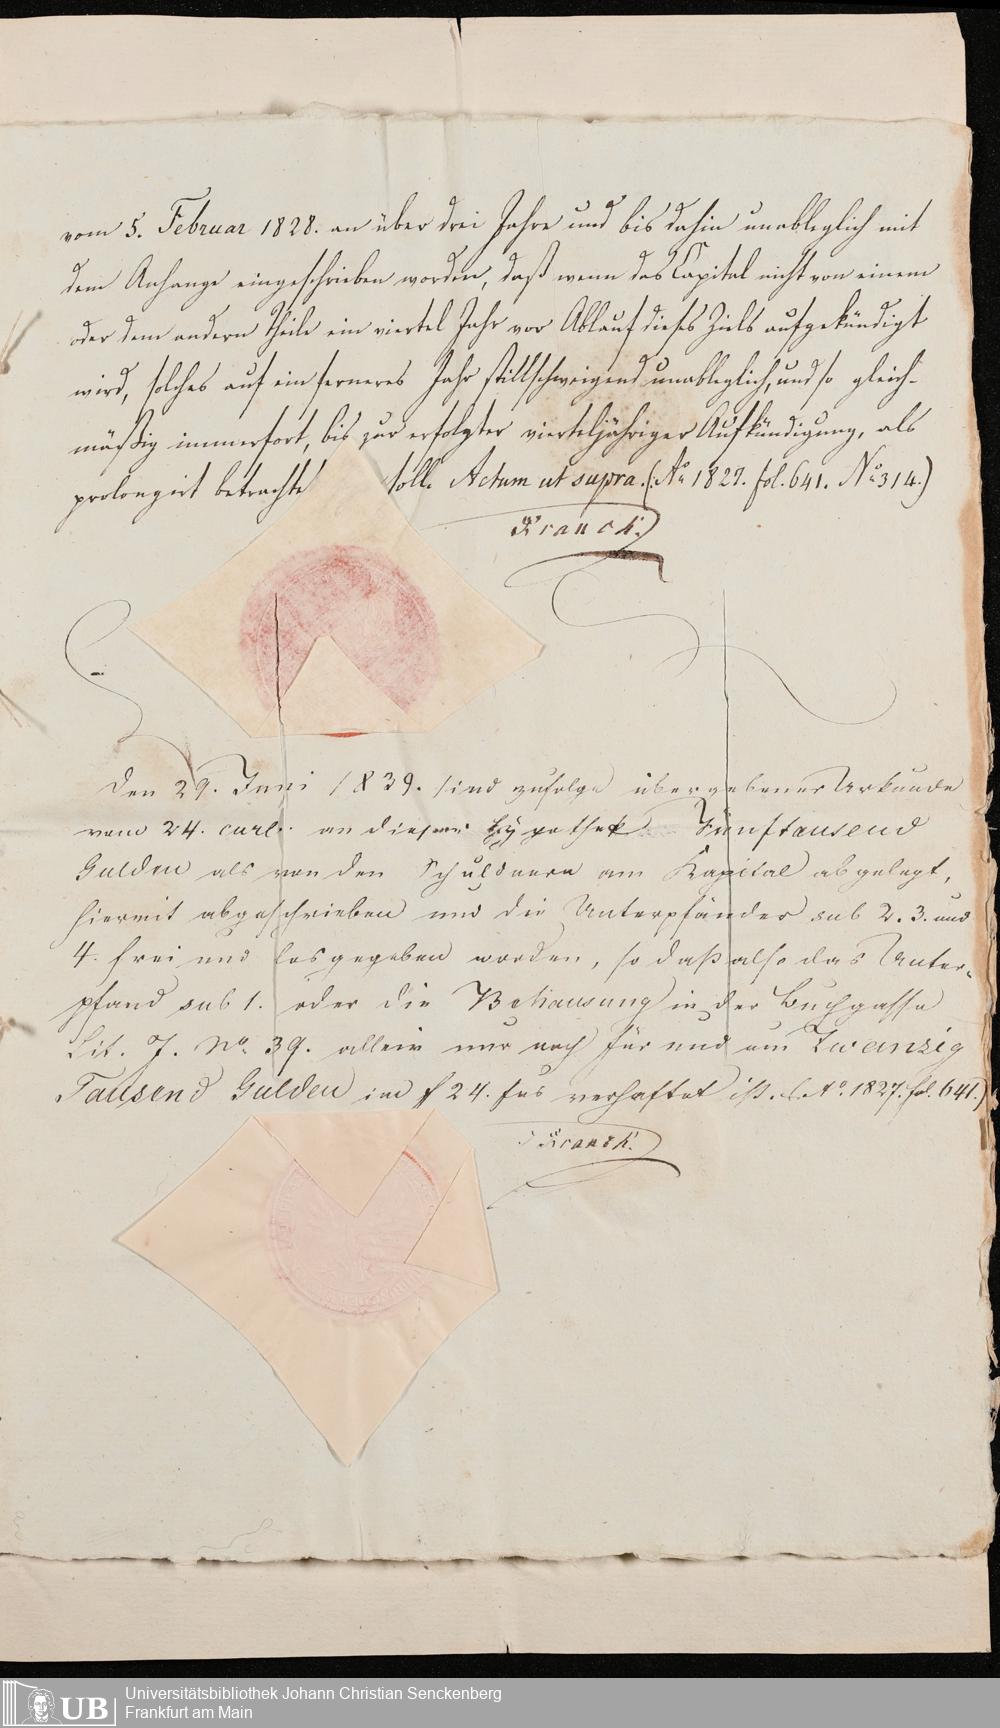 vom 5. Februar 1828. an über drei Jahre und bis dahin unableglich mit
dem Anhange eingeschrieben worden, daß wenn das Capital nicht von einem
oder dem andern Theile ein viertel Jahr vor Ablauf dieses Ziels aufgekündigt
wird, solches auf ein ferneres Jahr stillschweigend unableglich, und so gleich-
mäßig immerfort, bis zur erfolgter vierteljähriger Aufkündigung, als
prolongirt betrachte soll. Actum ut supra. (:Ao. 1827. fol. 641. No. 314.)
Franck.
Den 29. Juni 1839. sind zufolge übergebener Urkunde
vom 24. curt. an dieser Hypothek Fünftausend
Gulden als von den Schuldnern am Kapital abgelegt,
hiermit abgeschrieben und die Unterpfänder sub 2. 3. und
4. frei und losgegeben worden, so daß also das Unter-
pfand sub 1. oder die Behausung in der Buchgasse
Lit. J. No. 39. allein nur noch für und um Zwanzig
Tausend Gulden im f 24. fus verhaftet ist. (Ao. 1827. fol. 641.)
Franck.
UB
Universitätsbibliothek Johann Christian Senckenberg
Frankfurt am Main